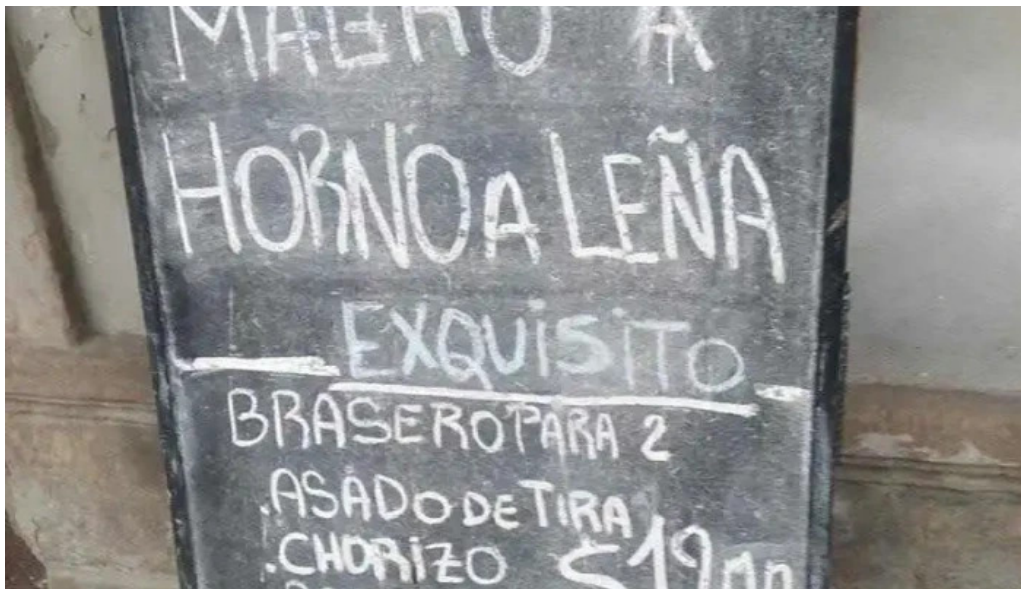 MAGRO A
HORNO A LEÑA
EXQUISITO
BRASERO PARA 2
.ASADO DE TIRA
.CHORIZO